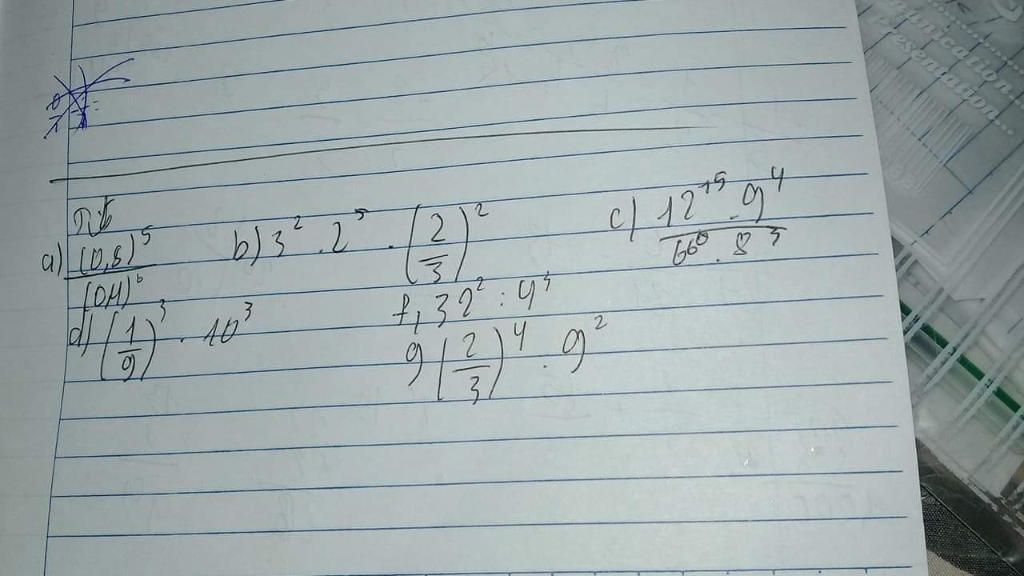 a) (0,8)^5 / (0,4)^6 b) 3^2 . 2^5 . (2/3)^2 c) 12^15 . 9^4 / 66^6 . 8^3
d) (1/9)^3 . 10^3 f, 32^2 : 4^3
g (2/3)^4 . 9^2